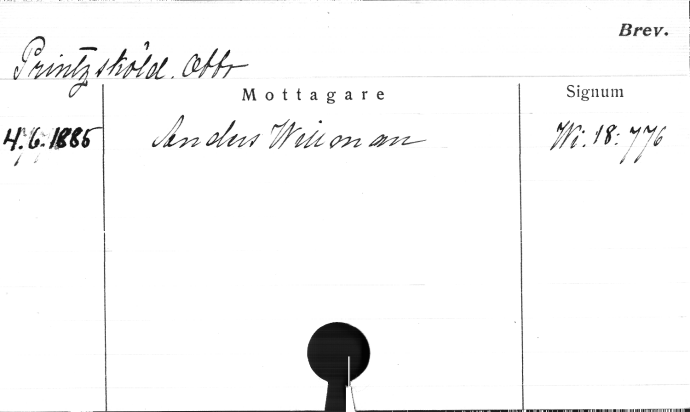 Brev.
Printzsköld. Otto
Mottagare
Signum
4.6.1885
Anders Willman
Wi: 18: 776